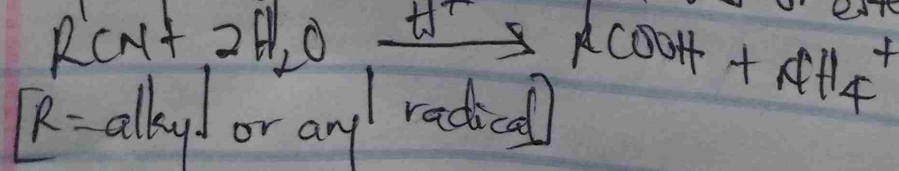 RCN + 2H₂O —H⁺→ RCOOH + NH₄⁺
[R = alkyl or aryl radical]